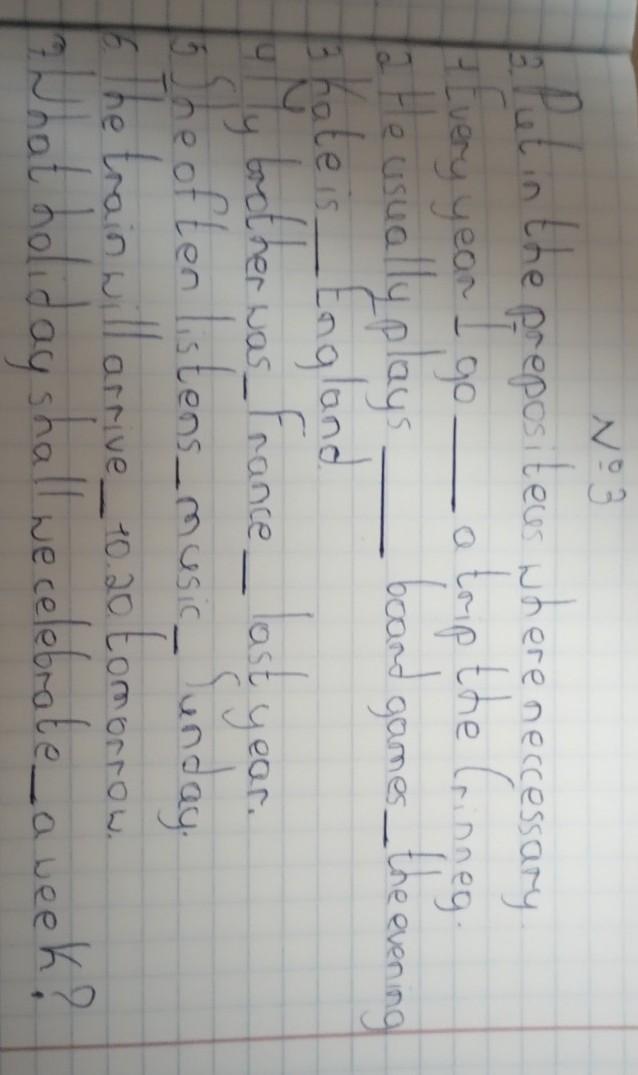 №3
3. Put in the prepositeus where neccessary.
1 Every year I go ___ a trip the Crinneg.
2 He usually plays ___ board games _ the evening
3 Kate is __ England.
4 My brother was _ France __ last year.
5 She often listens _ music _ Sunday.
6. The train will arrive _ 10.20 tomorrow.
7. What holiday shall we celebrate _ a week?